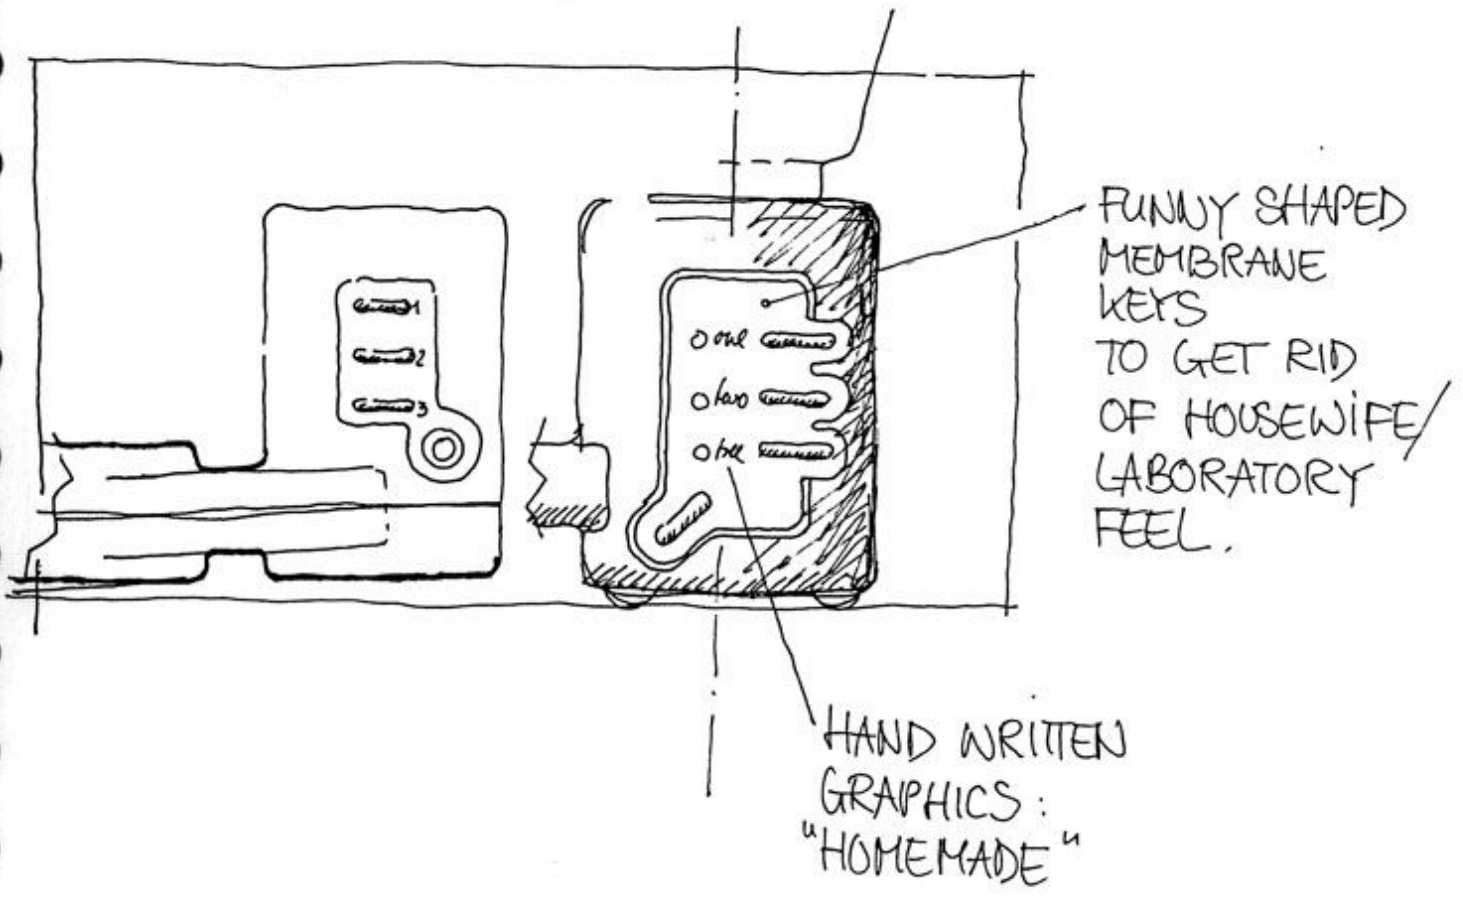 1
2
3
one
two
tree
FUNNY SHAPED
MEMBRANE
KEYS
TO GET RID
OF HOUSEWIFE/
LABORATORY
FEEL.
HAND WRITTEN
GRAPHICS:
"HOMEMADE"